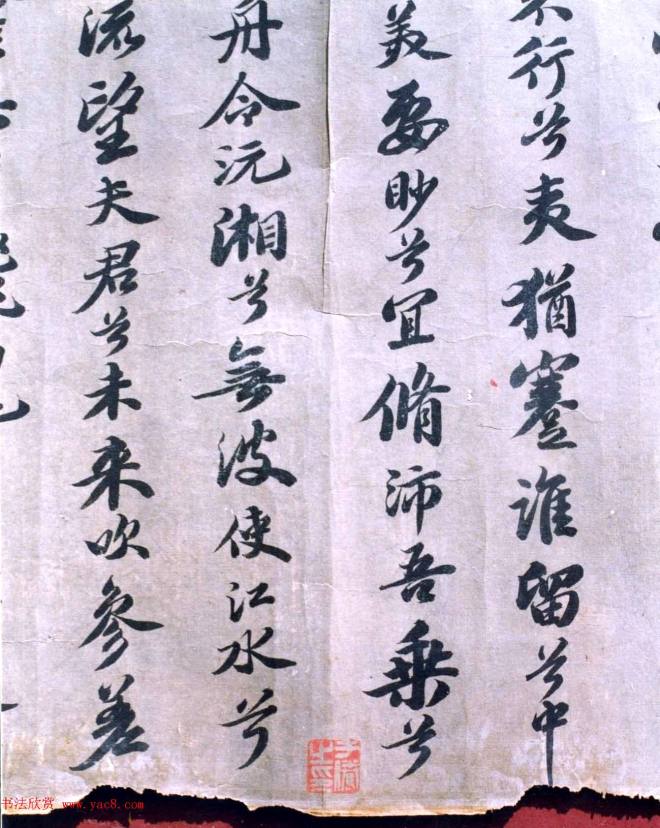 不行兮夷猶蹇誰留兮中
美要眇兮宜脩沛吾乗兮
舟令沅湘兮無波使江水兮
流望夫君兮未来吹參差
书法欣赏 www.yac8.com